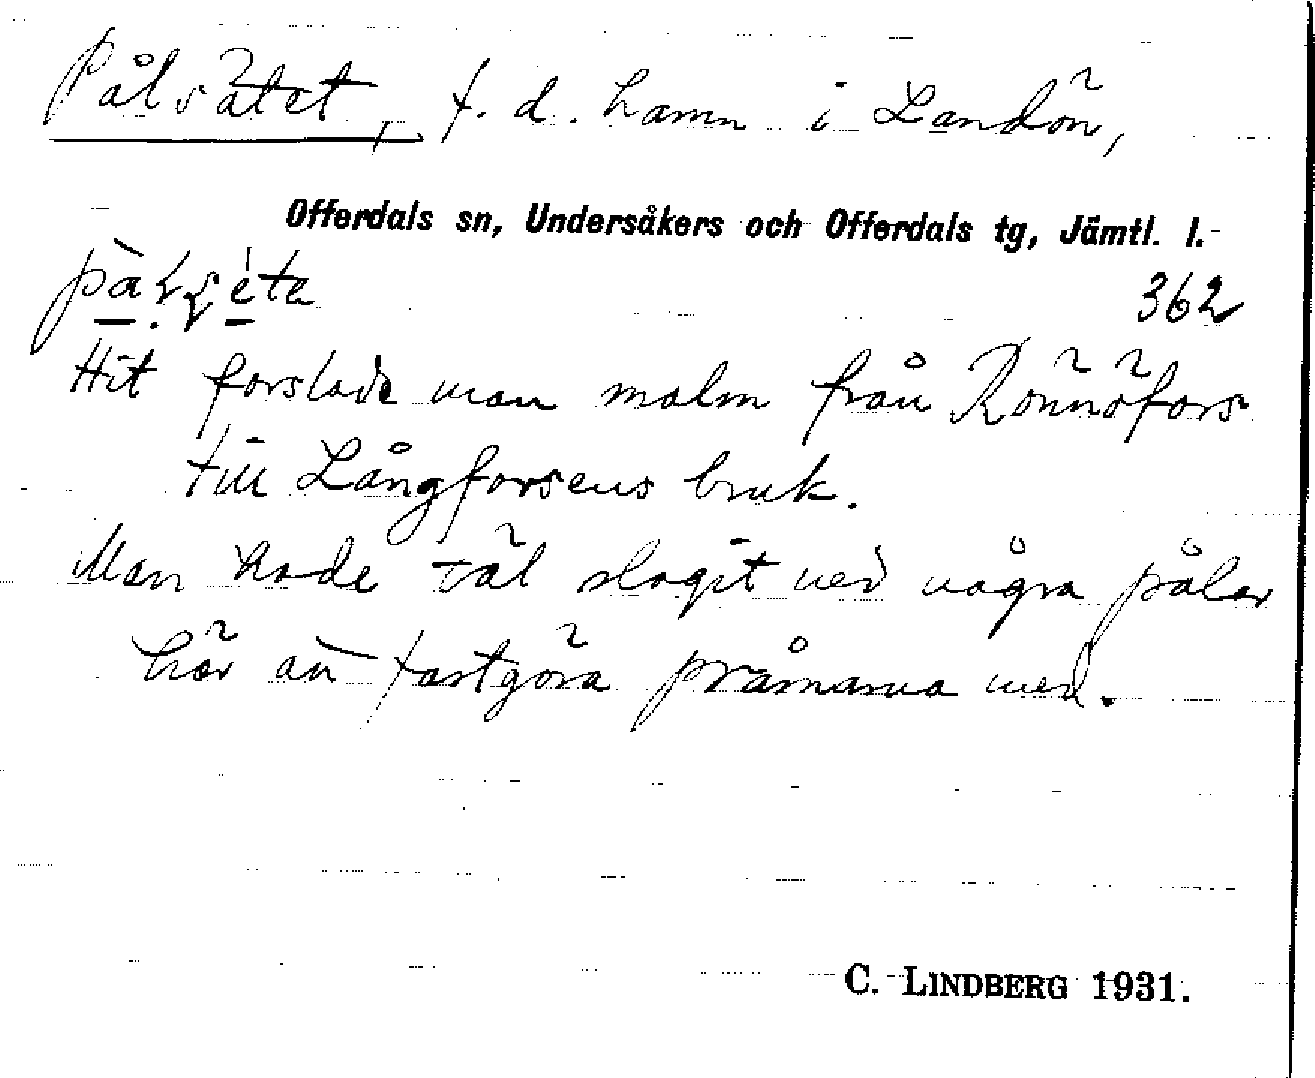 Pålsätet, f. d. hamn i Landön,
Offerdals sn, Undersåkers och Offerdals tg, Jämtl. l.
362
Hit forslade man malm från Rönnöfors
till Långforsens bruk.
Man hade väl slagit ned några pålar
här att fastgöra pråmarna med.
C. LINDBERG 1931.